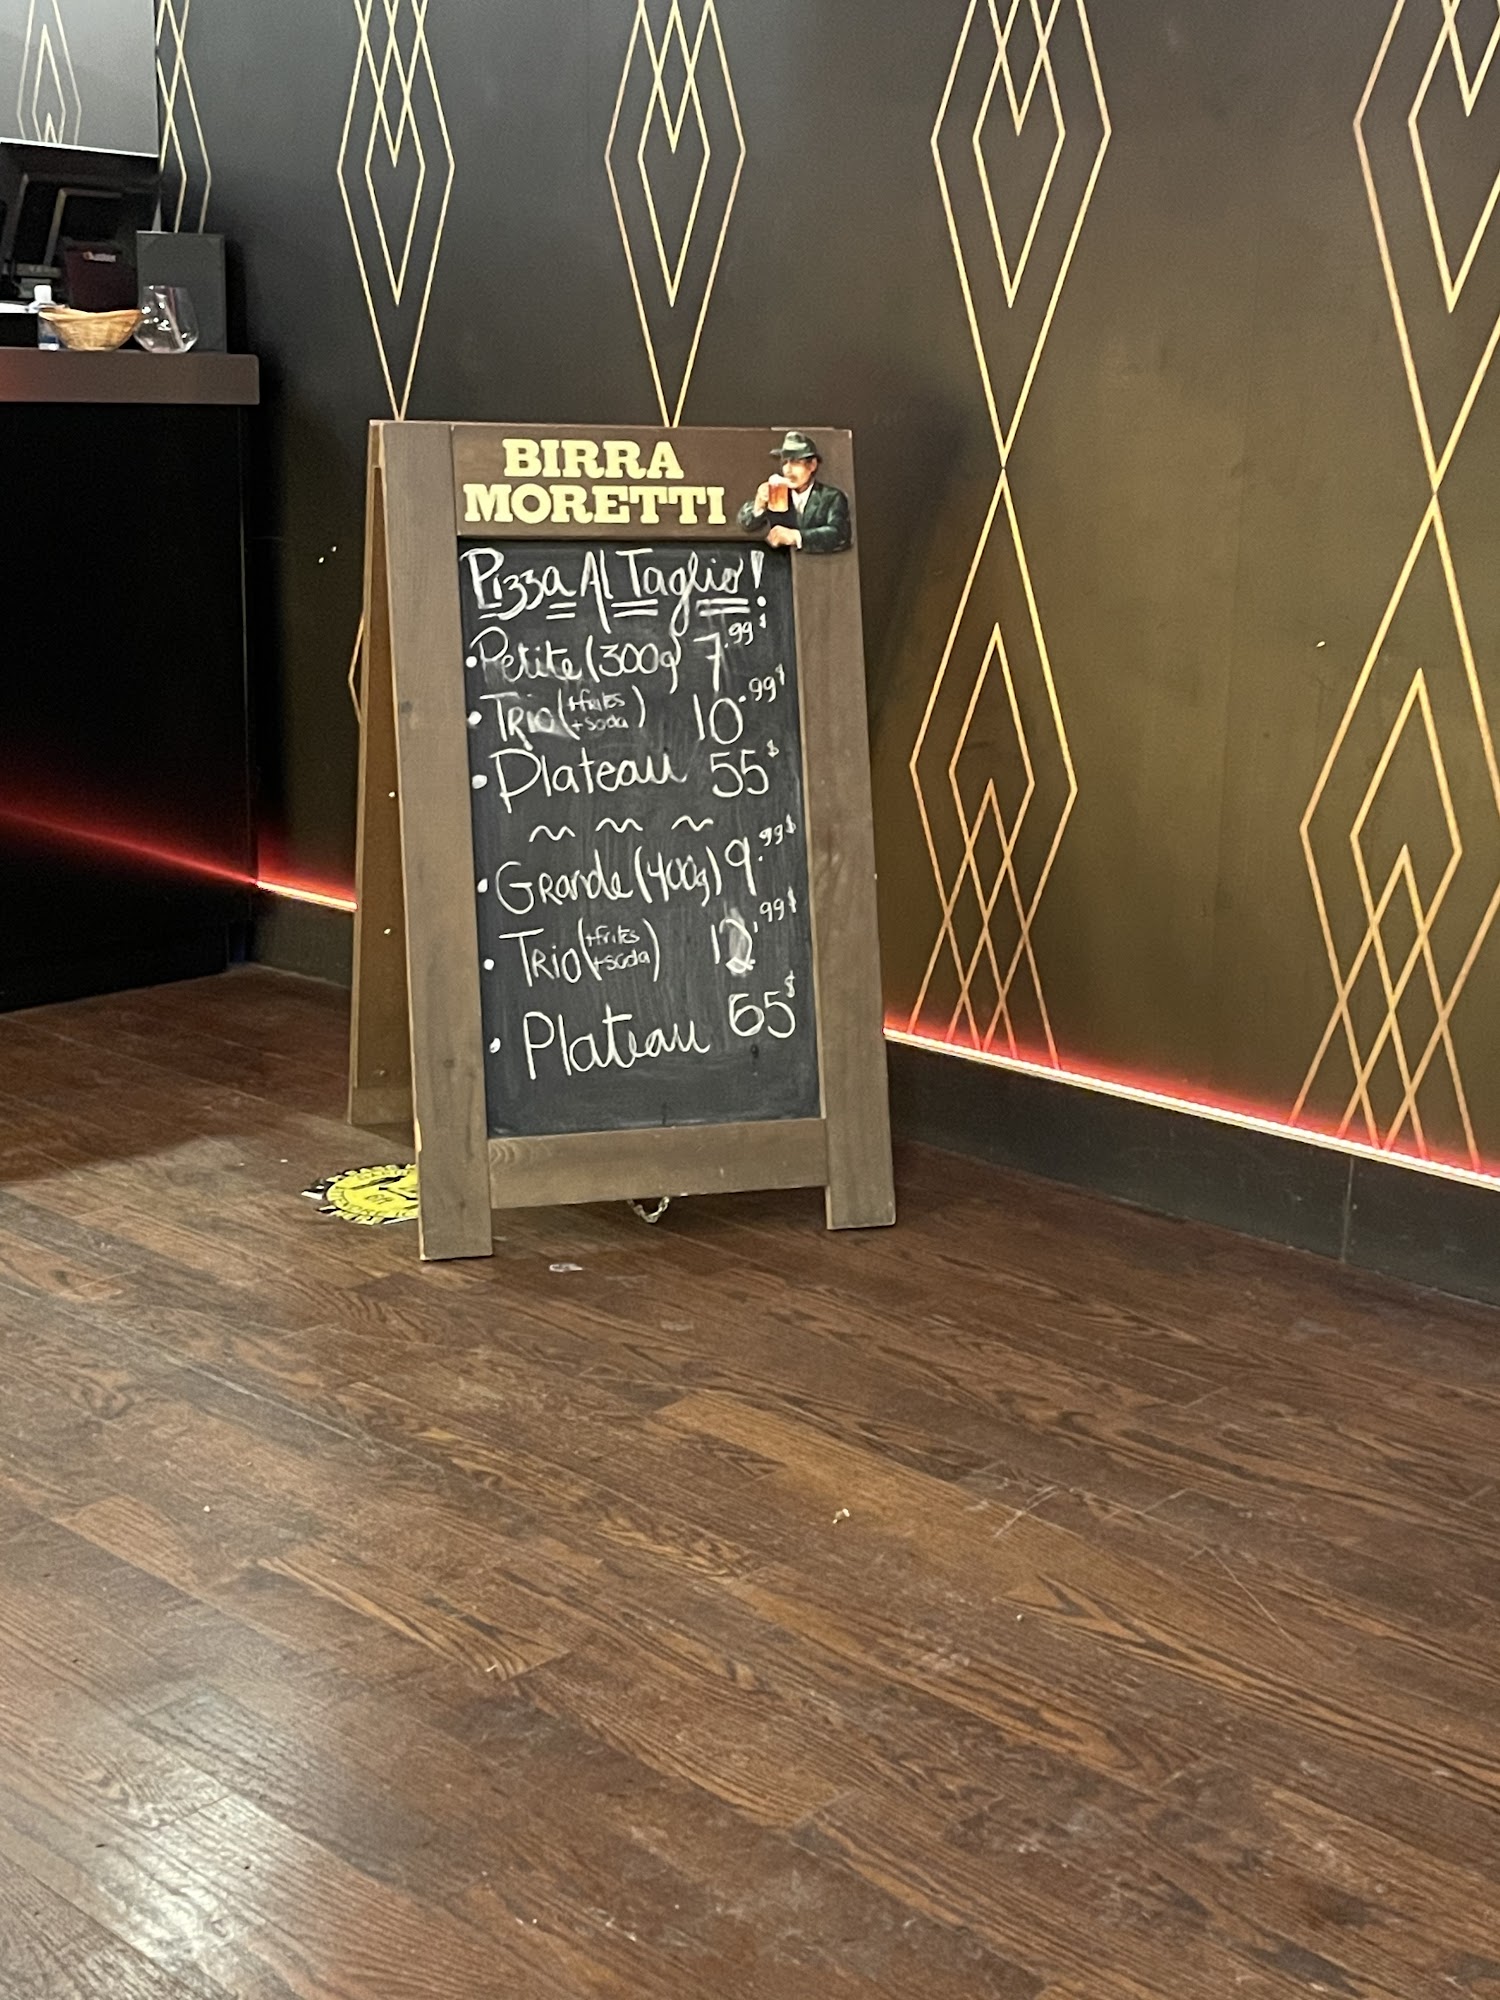 BIRRA
MORETTI
Pizza Al Taglio!
• Petite (300g) 7.99$
• Trio (+frites +soda) 10.99$
• Plateau 55$
~ ~ ~
• Grande (400g) 9.99$
• Trio (+frites +soda) 12.99$
• Plateau 65$